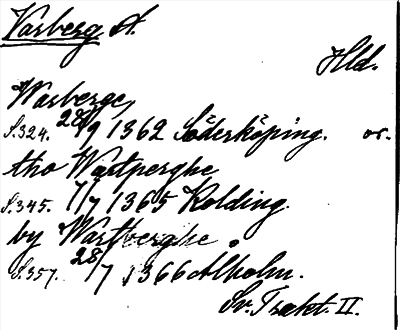 Varberg A.
Hld.
Warberge,
S.324. 28/9 1362 Söderköping. or.
tho Wartperghe
S.345. 7/7 1365 Kolding.
by Wartberghe
S.357. 28/7 1366 Alholm.
Sv. Trakt. II.